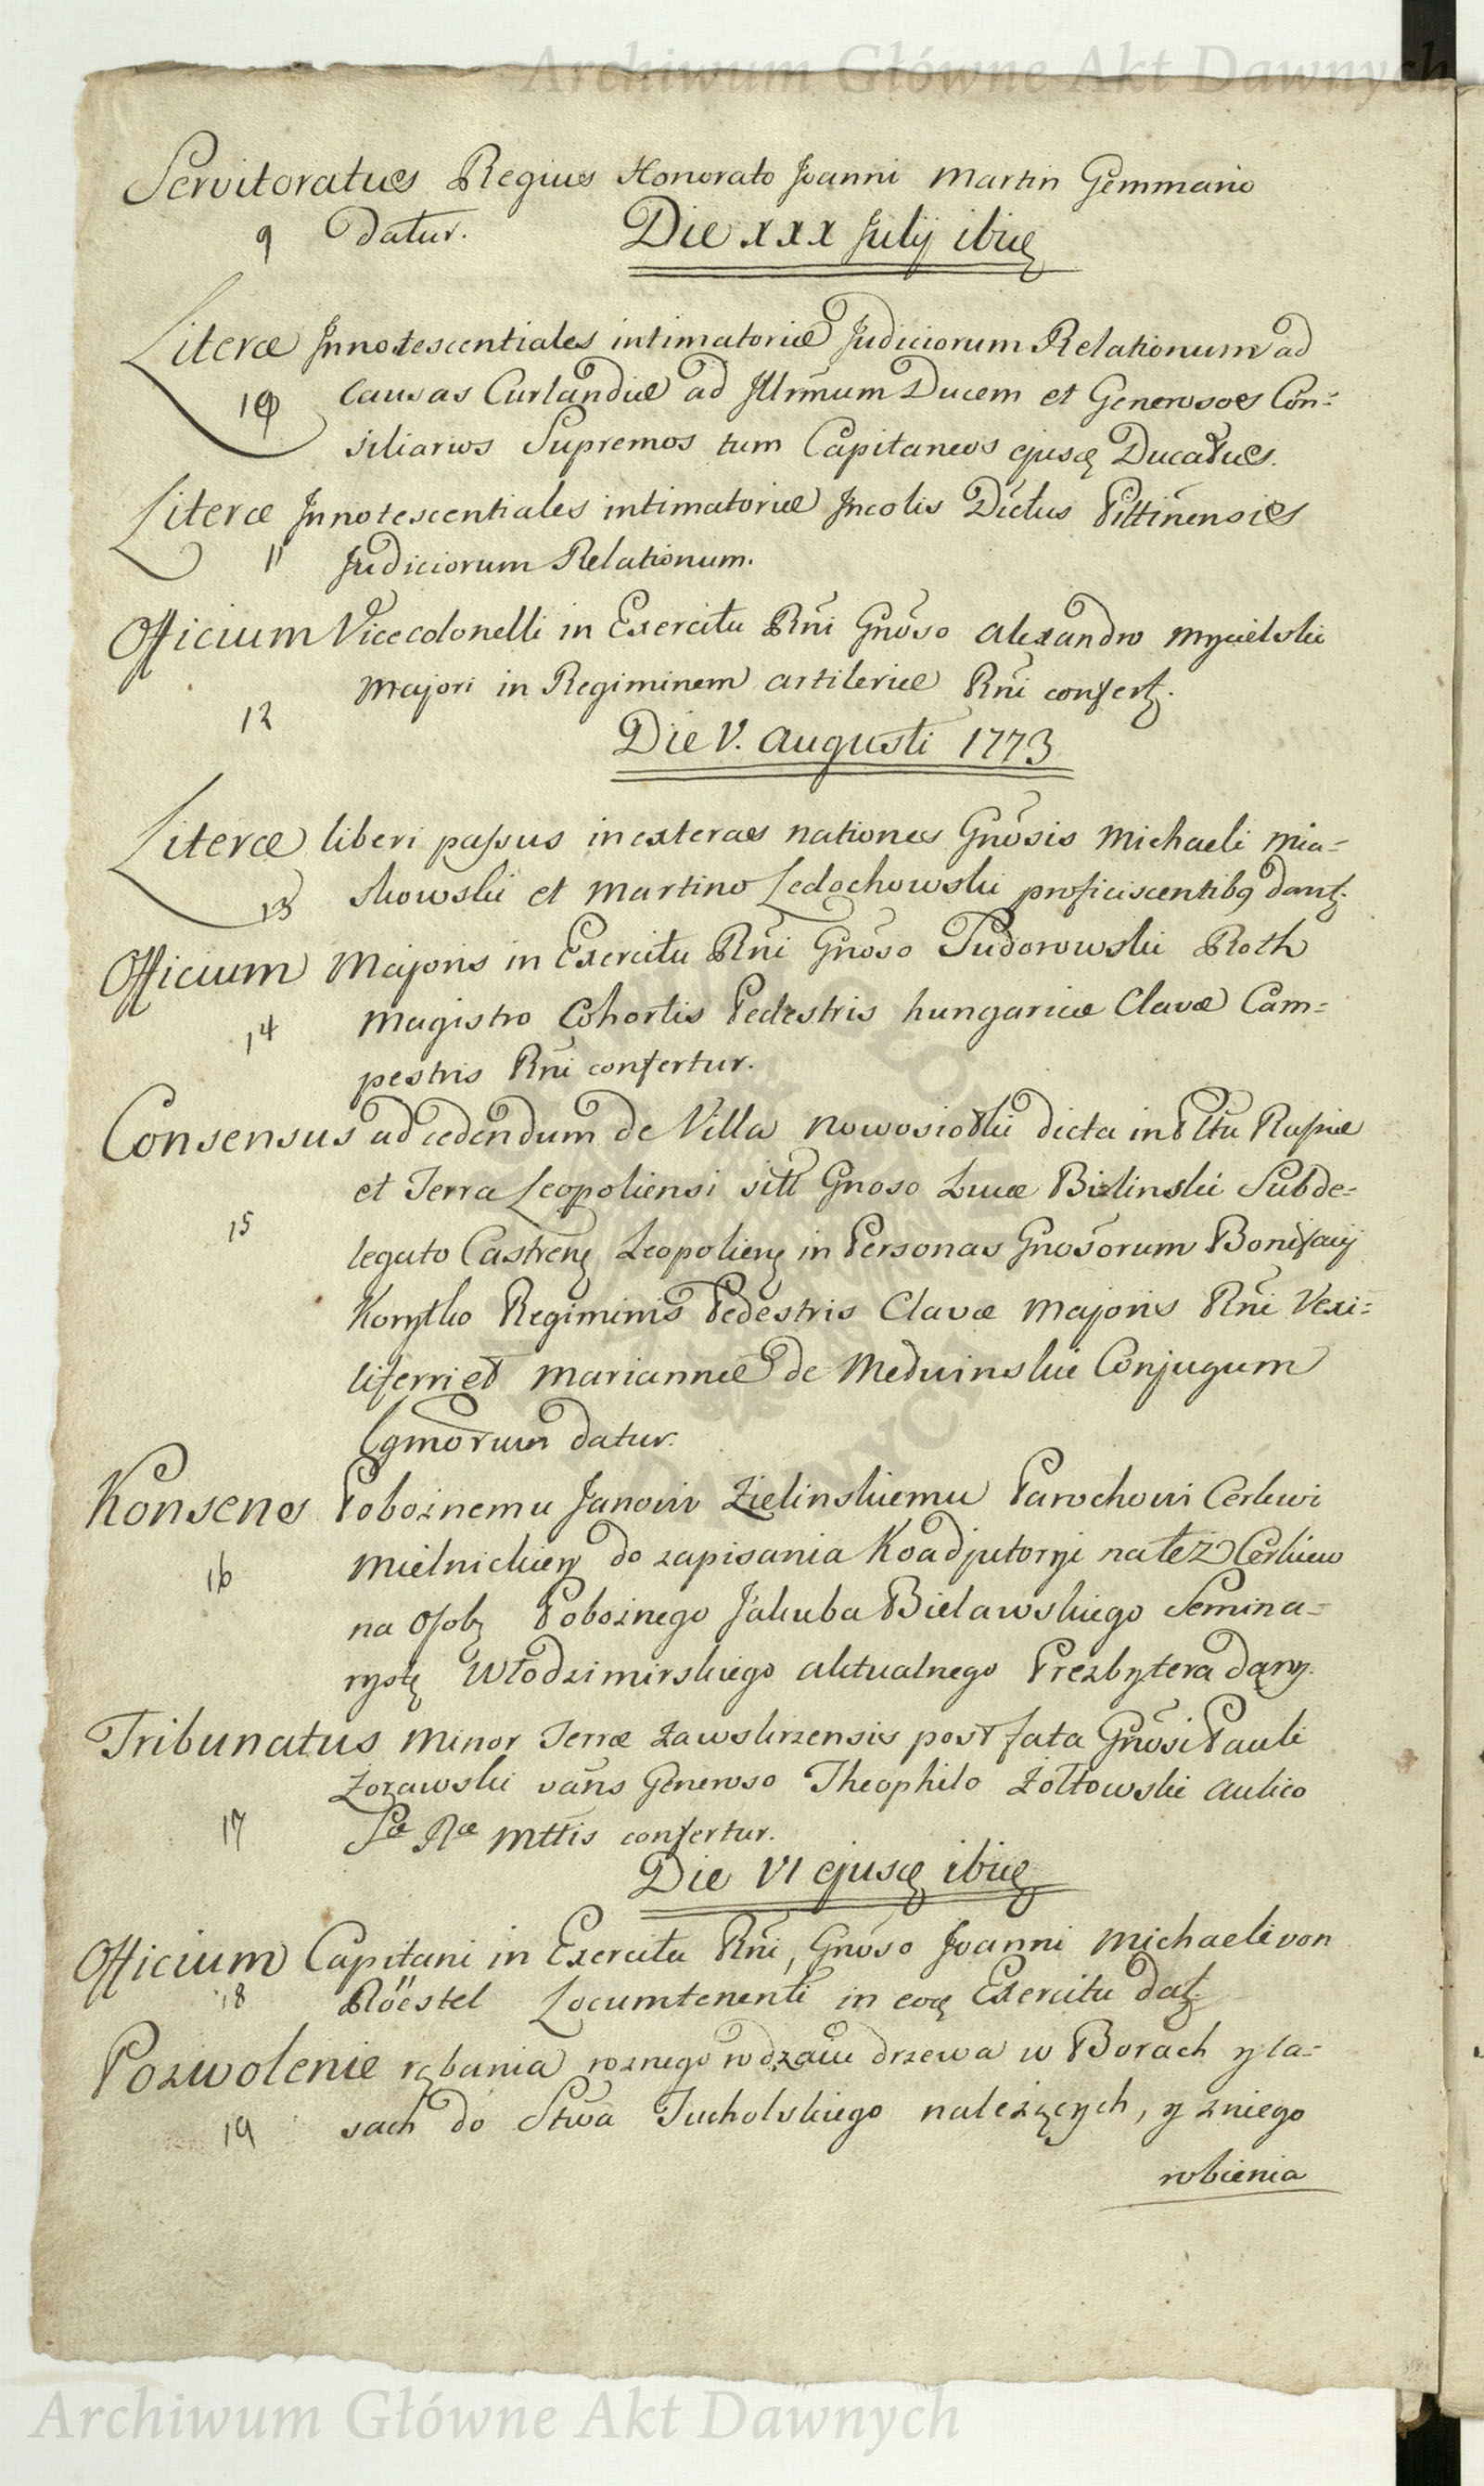 Archiwum Główne Akt Dawnych
Servitoratus Regius Honorato Joanni Martin Gemmario
9 Datur. Die xxx Julij ibiq
Literæ Innotescentiales intimatoriæ Judiciorum Relationum ad
10 causas Curlandiæ ad Illrmum Ducem et Generosos Con-
siliarios Supremos tum Capitaneos ejusq Ducatus.
Literæ Innotescentiales intimatoriæ Incolis Dictus Piltinensis
11 Judiciorum Relationum.
Officium Vicecolonelli in Exercitu Rni Gnoso Alexandro Mycielski
Majori in Regiminem artileriæ Rni confert.
12
Die V. Augusti 1773
Literæ liberi passus in exteras nationes Gnosis Michaeli Mia-
13 skowski et Martino Ledochowski proficiscentibq dant.
Officium Majoris in Exercitu Rni Gnoso Tudorowski Roth
14 Magistro Cohortis Pedestris hungaricæ Clavæ Cam-
pestris Rni confertur.
Consensus ad cedendum de Villa Nowosiołki dicta in Pltu Russiæ
et Terra Leopoliensi sitt Gnoso Lucæ Bielinski Subde-
15 legato Castren Leopolien in Personas Gnosorum Bonifacij
Korytko Regiminis Pedestris Clavæ Majoris Rni Vexi-
liferri et Mariannæ de Meduinskie Conjugum
Egmorum datur.
Konsens Pobożnemu Janowi Zielinskiemu Parochowi Cerkwi
16 Mielnickiey do zapisania Koadjutoryi na też Cerkiew
na Osobę Pobożnego Jakuba Bielawskiego Semina-
rystę Włodzimirskiego aktualnego Prezbytera dany.
Tribunatus Minor Terræ Zawskrzensis post fata Gnosi Pauli
Zorawski vans Generoso Theophilo Zołtowski Aulico
17 Sæ Ræ Mttis confertur.
Die VI ejusq ibiq
Officium Capitani in Exercitu Rni, Gnoso Joanni Michaeli von
18 Röestel Locumtenenti in eoq Exercitu dat.
Pozwolenie rębania roznego rodzaiu drzewa w Borach y la-
19 sach do Stwa Tucholskiego należących, y zniego
robienia
Archiwum Główne Akt Dawnych